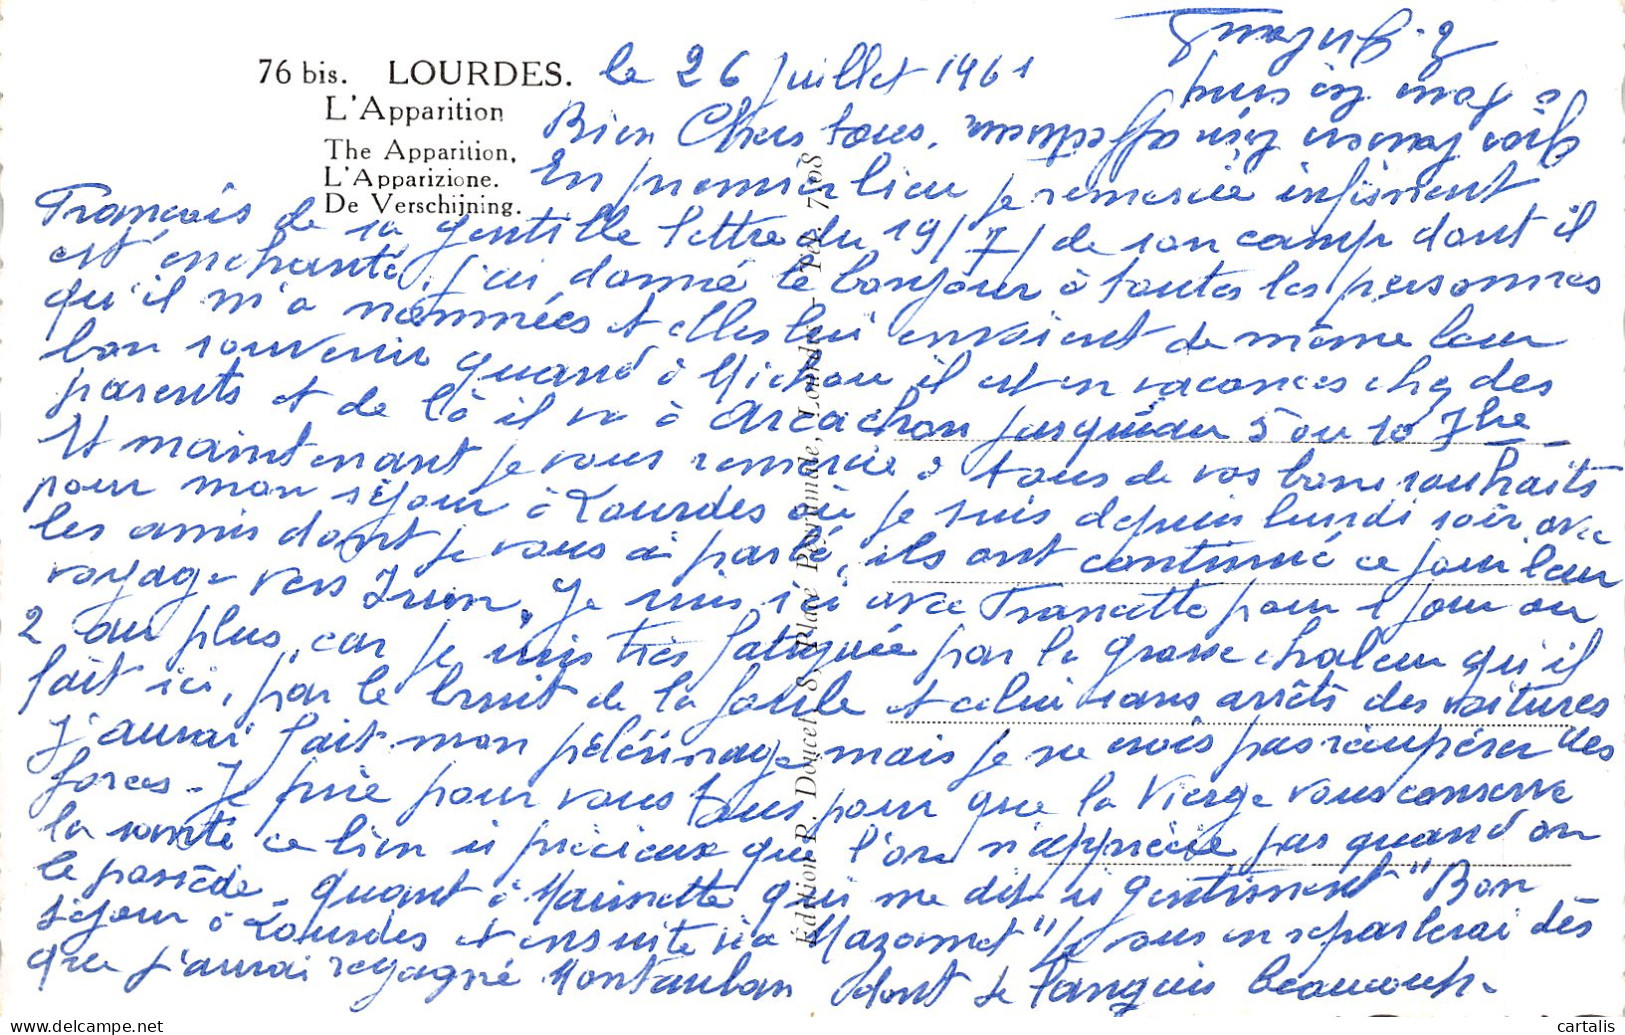 76 bis. LOURDES. le 26 Juillet 1961
L'Apparition
The Apparition.
L'Apparizione.
De Verschijning.
Bien Chers tous,
En premier lieu je remercie infiniment
François de sa gentille lettre du 19/7/ de son camp dont il
est enchanté, j'ai donné le bonjour à toutes les personnes
qu'il m'a nommées et elles lui envoient de même leur
bon souvenir quand à Michou il est en vacances chez des
parents et de là il va à Arcachon jusqu'au 5 ou 10 7bre
Et maintenant je vous remercie à tous de vos bons souhaits
pour mon séjour à Lourdes où je suis depuis lundi soir avec
les amis dont je vous ai parlé, ils ont continué ce jour leur
voyage vers Irun. Je suis ici avec Francette pour 1 jour ou
2 au plus, car je suis très fatiguée par la grosse chaleur qu'il
fait ici, par le bruit de la foule et celui sans arrêts des voitures
J'aurai fait mon pélérinage mais je ne crois pas récupérer des
forces. Je prie pour vous tous pour que la Vierge vous conserve
la santé ce bien si précieux que l'on n'apprécie pas quand on
le possède. quant à Mainette qui me dit si gentiment "Bon
séjour à Lourdes et ensuite via Mazamet" je vous en reparlerai dès
que j'aurai regagné Montauban dont je languis beaucoup.
Édition P. Doucet, 8, Place Peyramale, Lourdes - Tél. 7-08
cartalis
www.delcampe.net